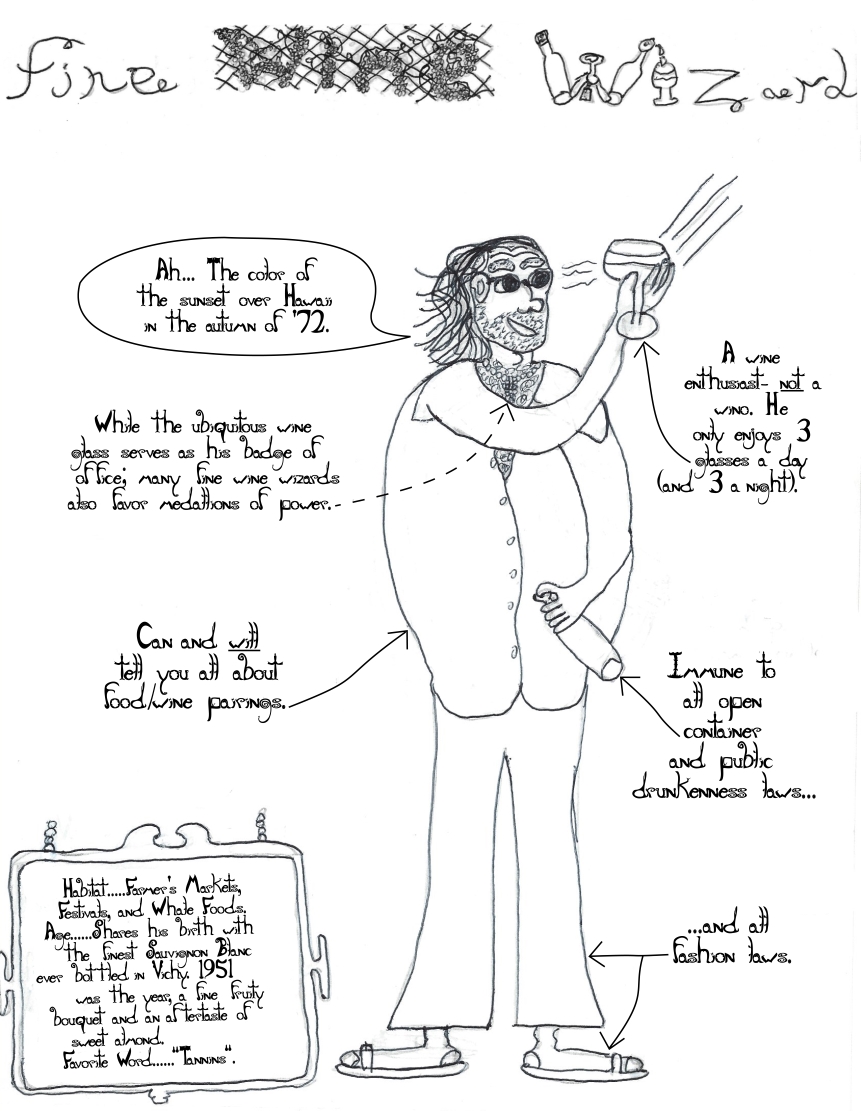 Fine Wine Wizard
Ah... The color of
the sunset over Hawaii
in the autumn of '72.
A wine
enthusiast- not a
wino. He
only enjoys 3
glasses a day
(and 3 a night).
While the ubiquitous wine
glass serves as his badge of
office; many fine wine wizards
also favor medallions of power.
Can and will
tell you all about
food/wine pairings.
Immune to
all open
container
and public
drunkenness laws...
...and all
fashion laws.
Habitat.....Farmer's Markets,
Festivals, and Whole Foods.
Age......Shares his birth with
the finest Sauvignon Blanc
ever bottled in Vichy. 1951
was the year, a fine fruity
bouquet and an aftertaste of
sweet almond.
Favorite Word......"Tannins".